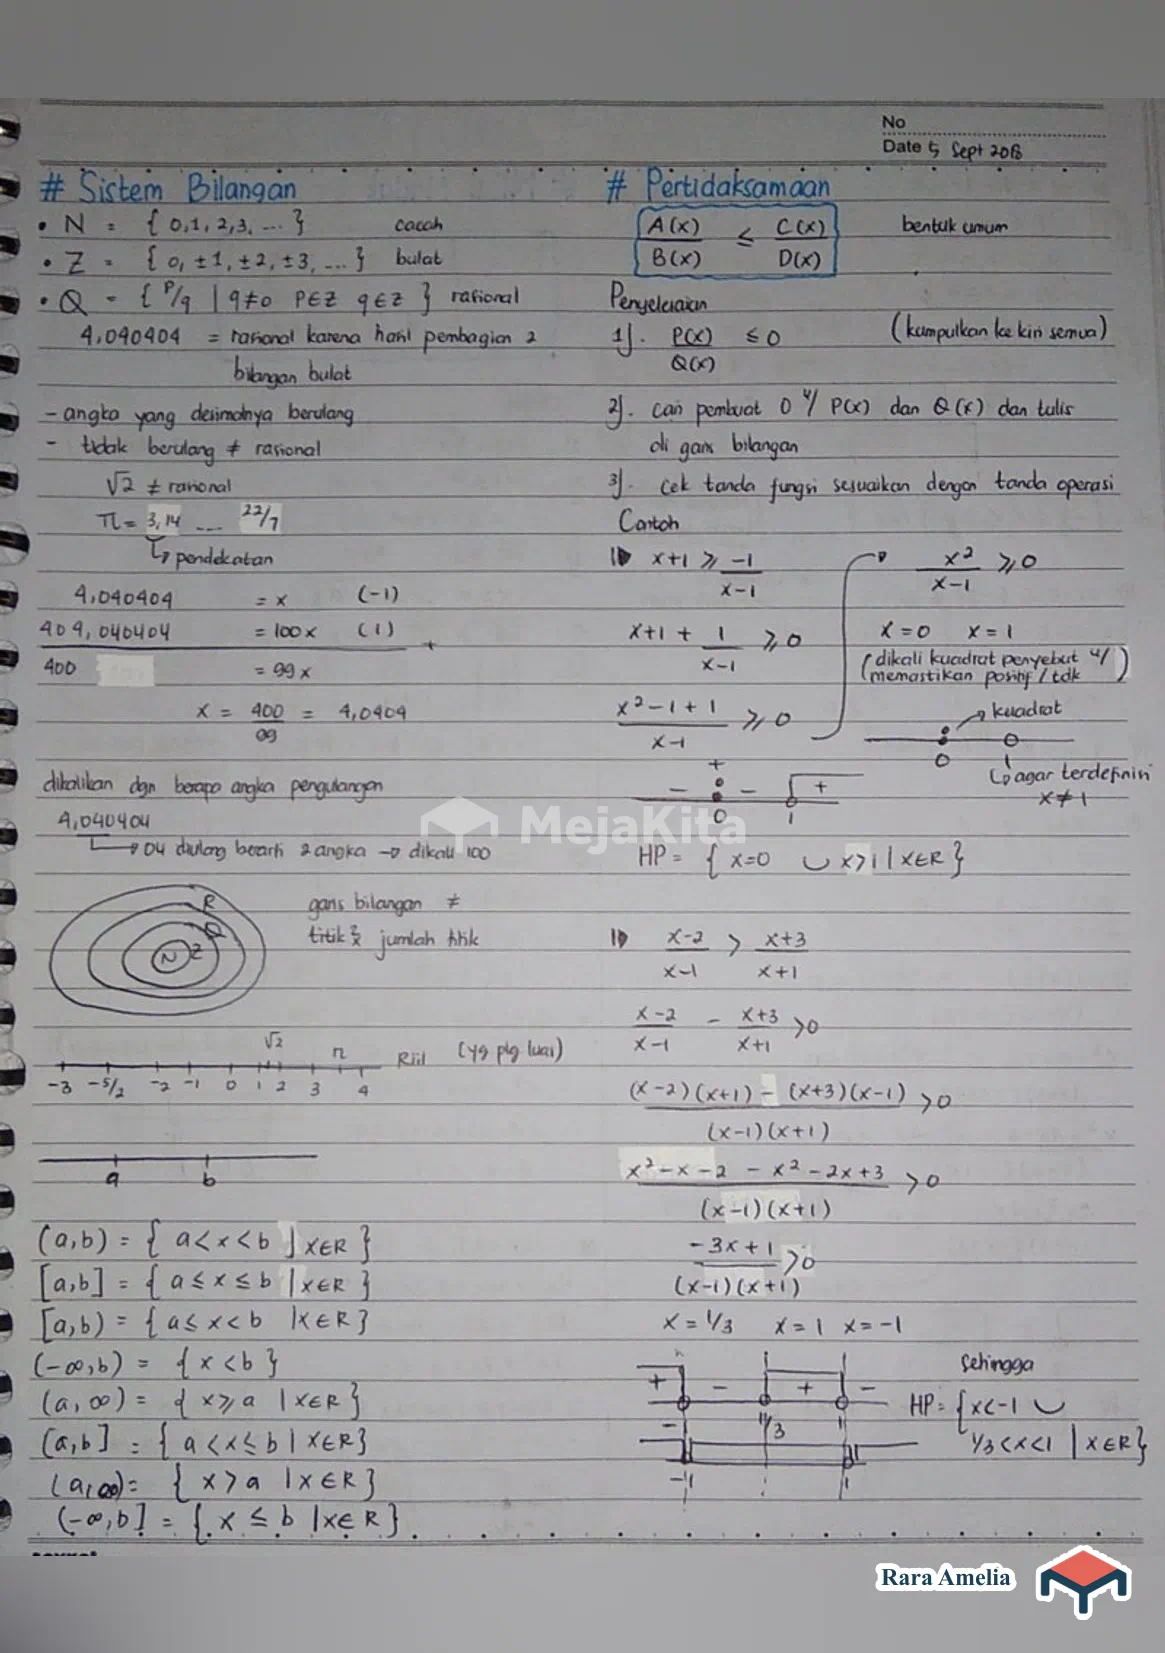 No
Date 5 Sept 2018
# Sistem Bilangan
• N = { 0,1,2,3, ... } cacah
• Z = { 0, ±1, ±2, ±3, ... } bulat
• Q = { P/q | q≠0 p∈Z q∈Z } rasional
4,040404 = rasional karena hasil pembagian 2
bilangan bulat
- angka yang desimalnya berulang
- tidak berulang ≠ rasional
√2 ≠ rasional
π = 3,14 ... 22/7
↳ pendekatan
4,040404 = x (-1)
404,040404 = 100x (1) +
400 = 99x
x = 400/99 = 4,0404
dikalikan dgn berapa angka pengulangan
4,040404
→ 04 diulang berarti 2 angka → dikali 100
R
Q
Z
N
garis bilangan ≠
titik² jumlah titik
√2 π Riil (yg plg luas)
-3 -5/2 -2 -1 0 1 2 3 4
a b
(a,b) = { a<x<b | x∈R }
[a,b] = { a≤x≤b | x∈R }
[a,b) = { a≤x<b | x∈R }
(-∞,b) = { x<b }
(a,∞) = { x≥a | x∈R }
(a,b] = { a<x≤b | x∈R }
(a,∞) = { x>a | x∈R }
(-∞,b] = { x ≤ b | x∈R }
# Pertidaksamaan
A(x)/B(x) ≤ C(x)/D(x) bentuk umum
Penyelesaian
1). P(x)/Q(x) ≤ 0 (kumpulkan ke kiri semua)
2). cari pembuat 0 u/ P(x) dan Q(x) dan tulis
di garis bilangan
3). Cek tanda fungsi sesuaikan dengan tanda operasi
Contoh
x+1 ≥ -1/x-1
x+1 + 1/x-1 ≥ 0
x²-1+1/x-1 ≥ 0
x²/x-1 ≥ 0
x=0 x=1
(dikali kuadrat penyebut u/
memastikan positif / tdk)
→ kuadrat
0 1
↳ agar terdefinisi
x≠1
- + - +
0 1
HP = { x=0 ∪ x>1 | x∈R }
x-2/x-1 > x+3/x+1
x-2/x-1 - x+3/x+1 > 0
(x-2)(x+1) - (x+3)(x-1)/(x-1)(x+1) > 0
x²-x-2 - x²-2x+3/(x-1)(x+1) > 0
-3x+1/(x-1)(x+1) > 0
x = 1/3 x = 1 x = -1
+ - + -
-1 1/3 1
-1 1
Sehingga
HP = { x<-1 ∪
1/3<x<1 | x∈R }
MejaKita
Rara Amelia